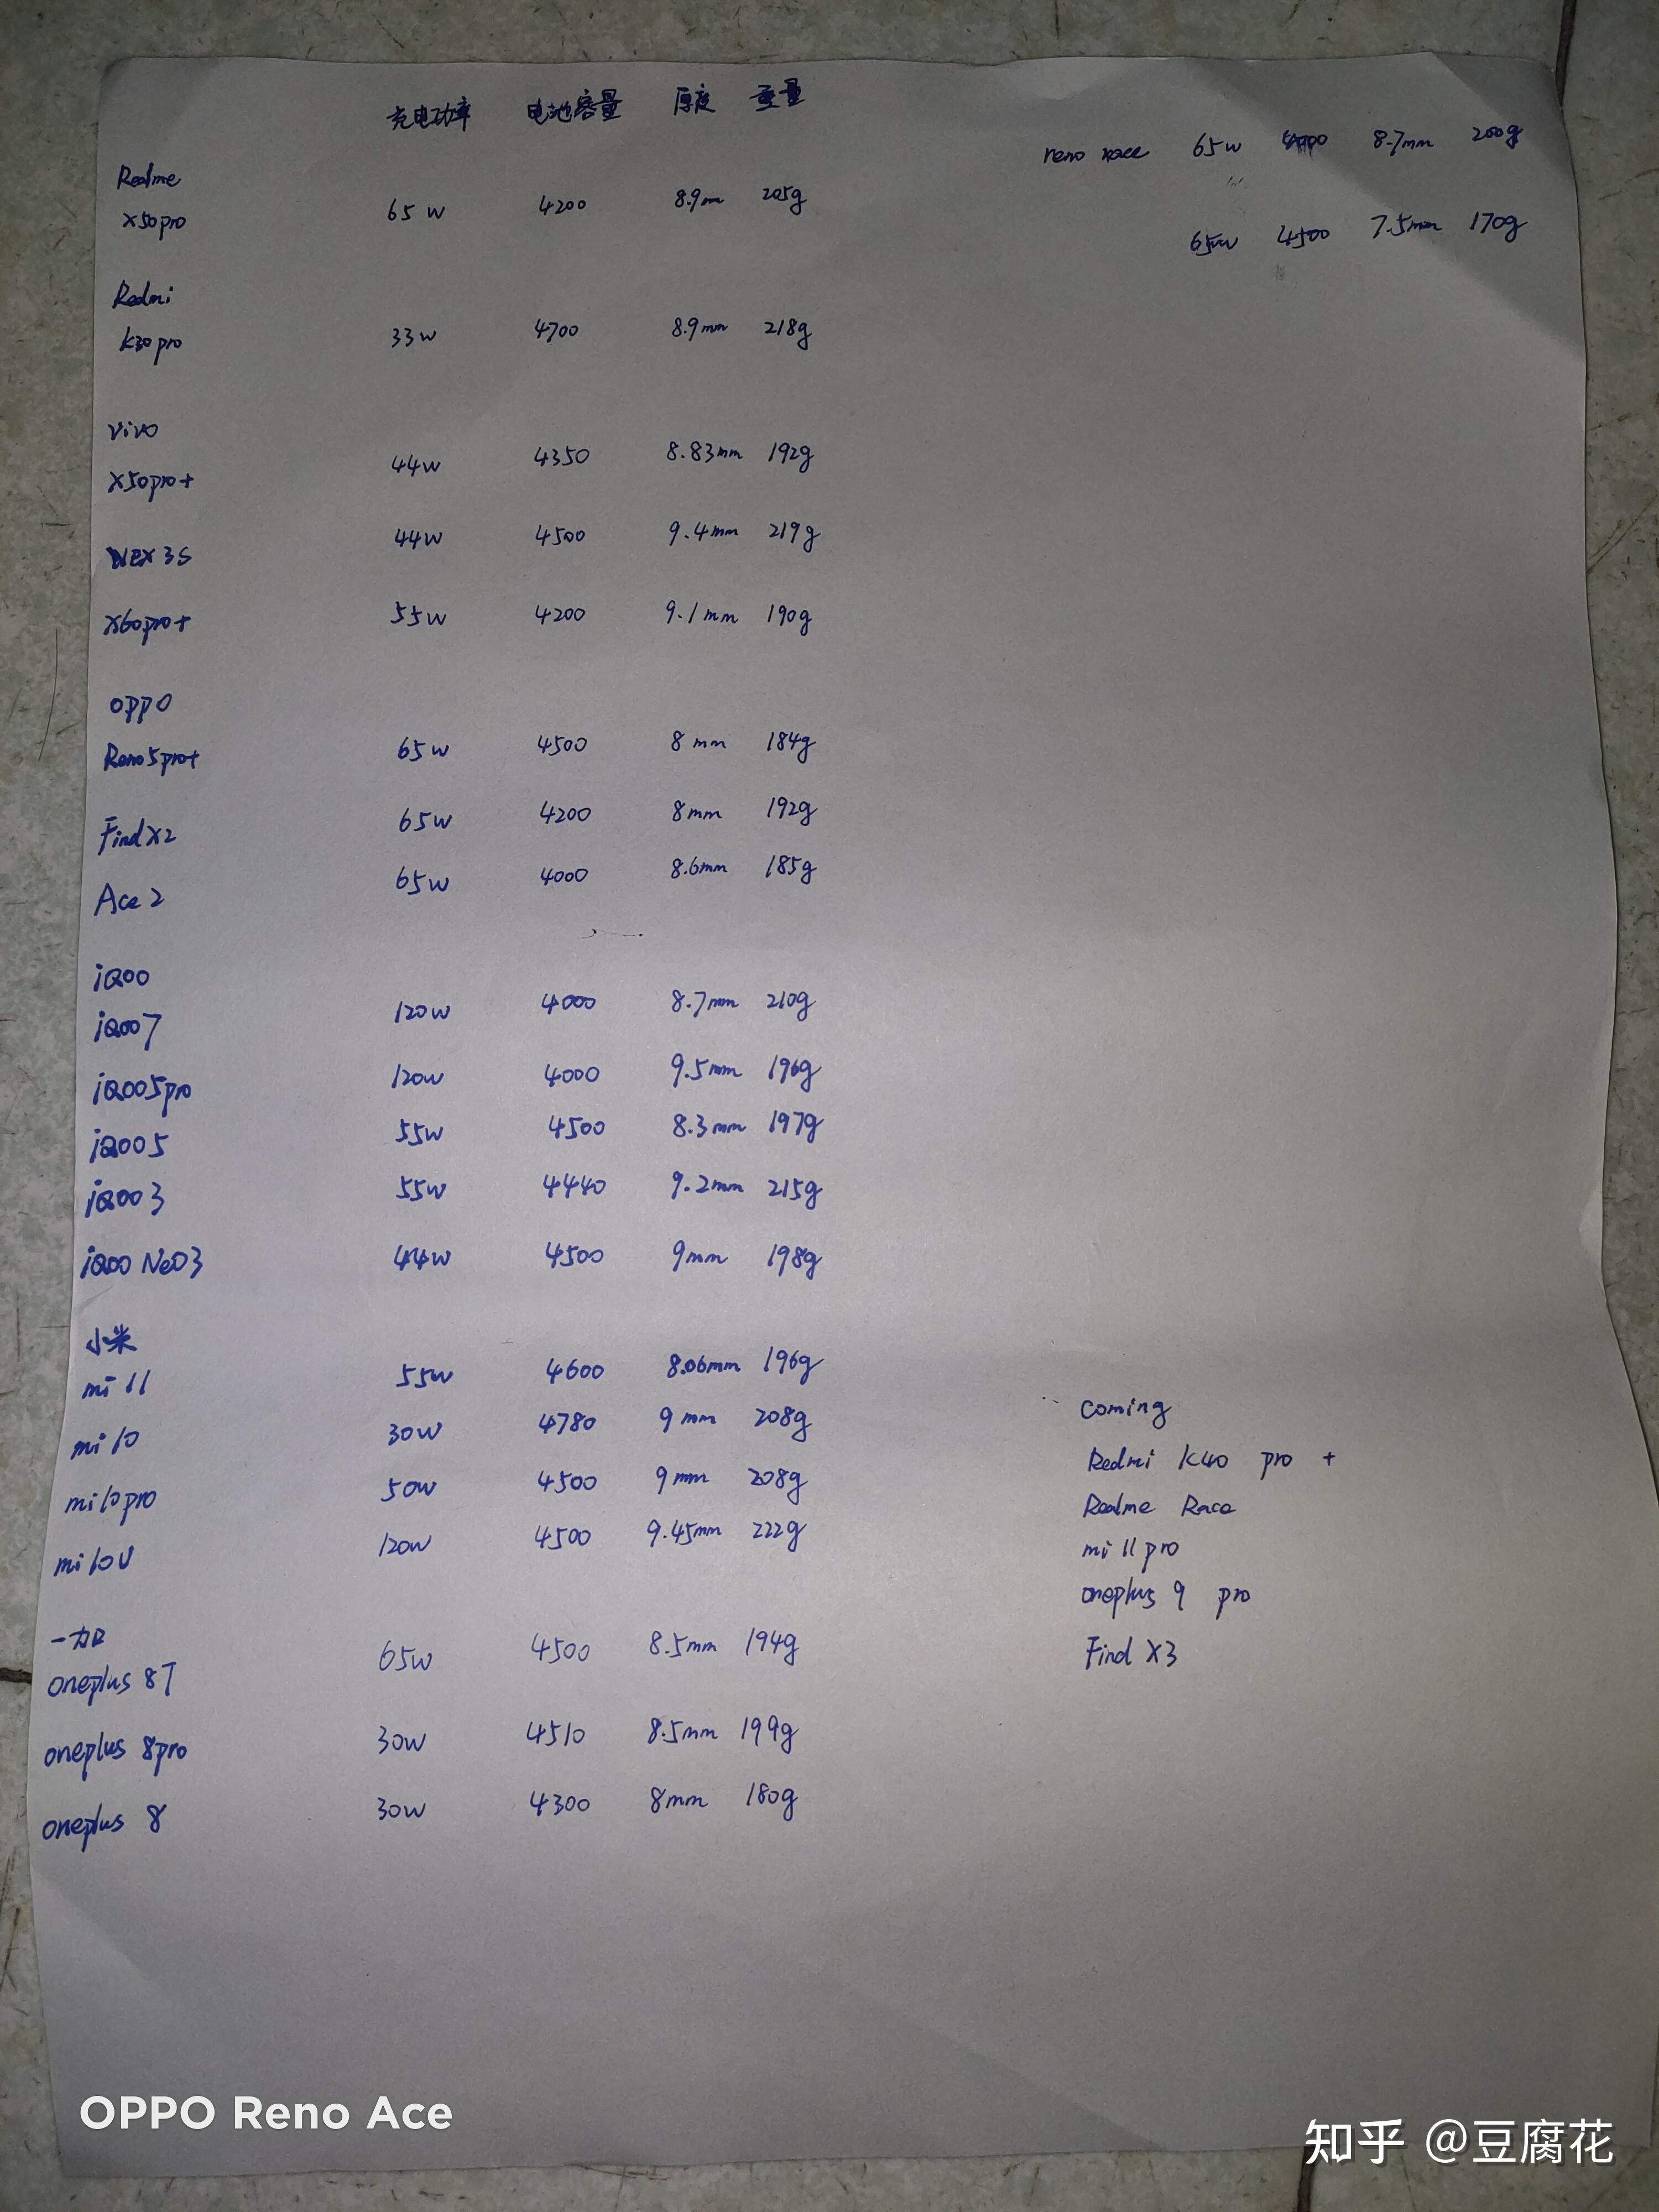 充电功率 电池容量 厚度 重量
Realme
X50pro 65w 4200 8.9mm 205g
Redmi
k30pro 33w 4700 8.9mm 218g
vivo
X50pro+ 44w 4350 8.83mm 192g
NEX 3S 44w 4500 9.4mm 219g
X60pro+ 55w 4200 9.1mm 190g
OPPO
Reno5pro+ 65w 4500 8mm 184g
Find X2 65w 4200 8mm 192g
Ace 2 65w 4000 8.6mm 185g
iQOO
iQOO7 120w 4000 8.7mm 210g
iQOO5pro 120w 4000 9.5mm 196g
iQOO5 55w 4500 8.3mm 197g
iQOO3 55w 4440 9.2mm 215g
iQOO NeO3 44w 4500 9mm 198g
小米
mi 11 55w 4600 8.06mm 196g
mi 10 30w 4780 9mm 208g
mi10pro 50w 4500 9mm 208g
mi10U 120w 4500 9.45mm 222g
一加
oneplus 8T 65w 4500 8.5mm 194g
oneplus 8pro 30w 4510 8.5mm 199g
oneplus 8 30w 4300 8mm 180g
reno 65w 4000 8.7mm 200g
65w 4500 7.5mm 170g
coming
Redmi K40 pro +
Realme Race
mi 11 pro
oneplus 9 pro
Find X3
OPPO Reno Ace
知乎 @豆腐花